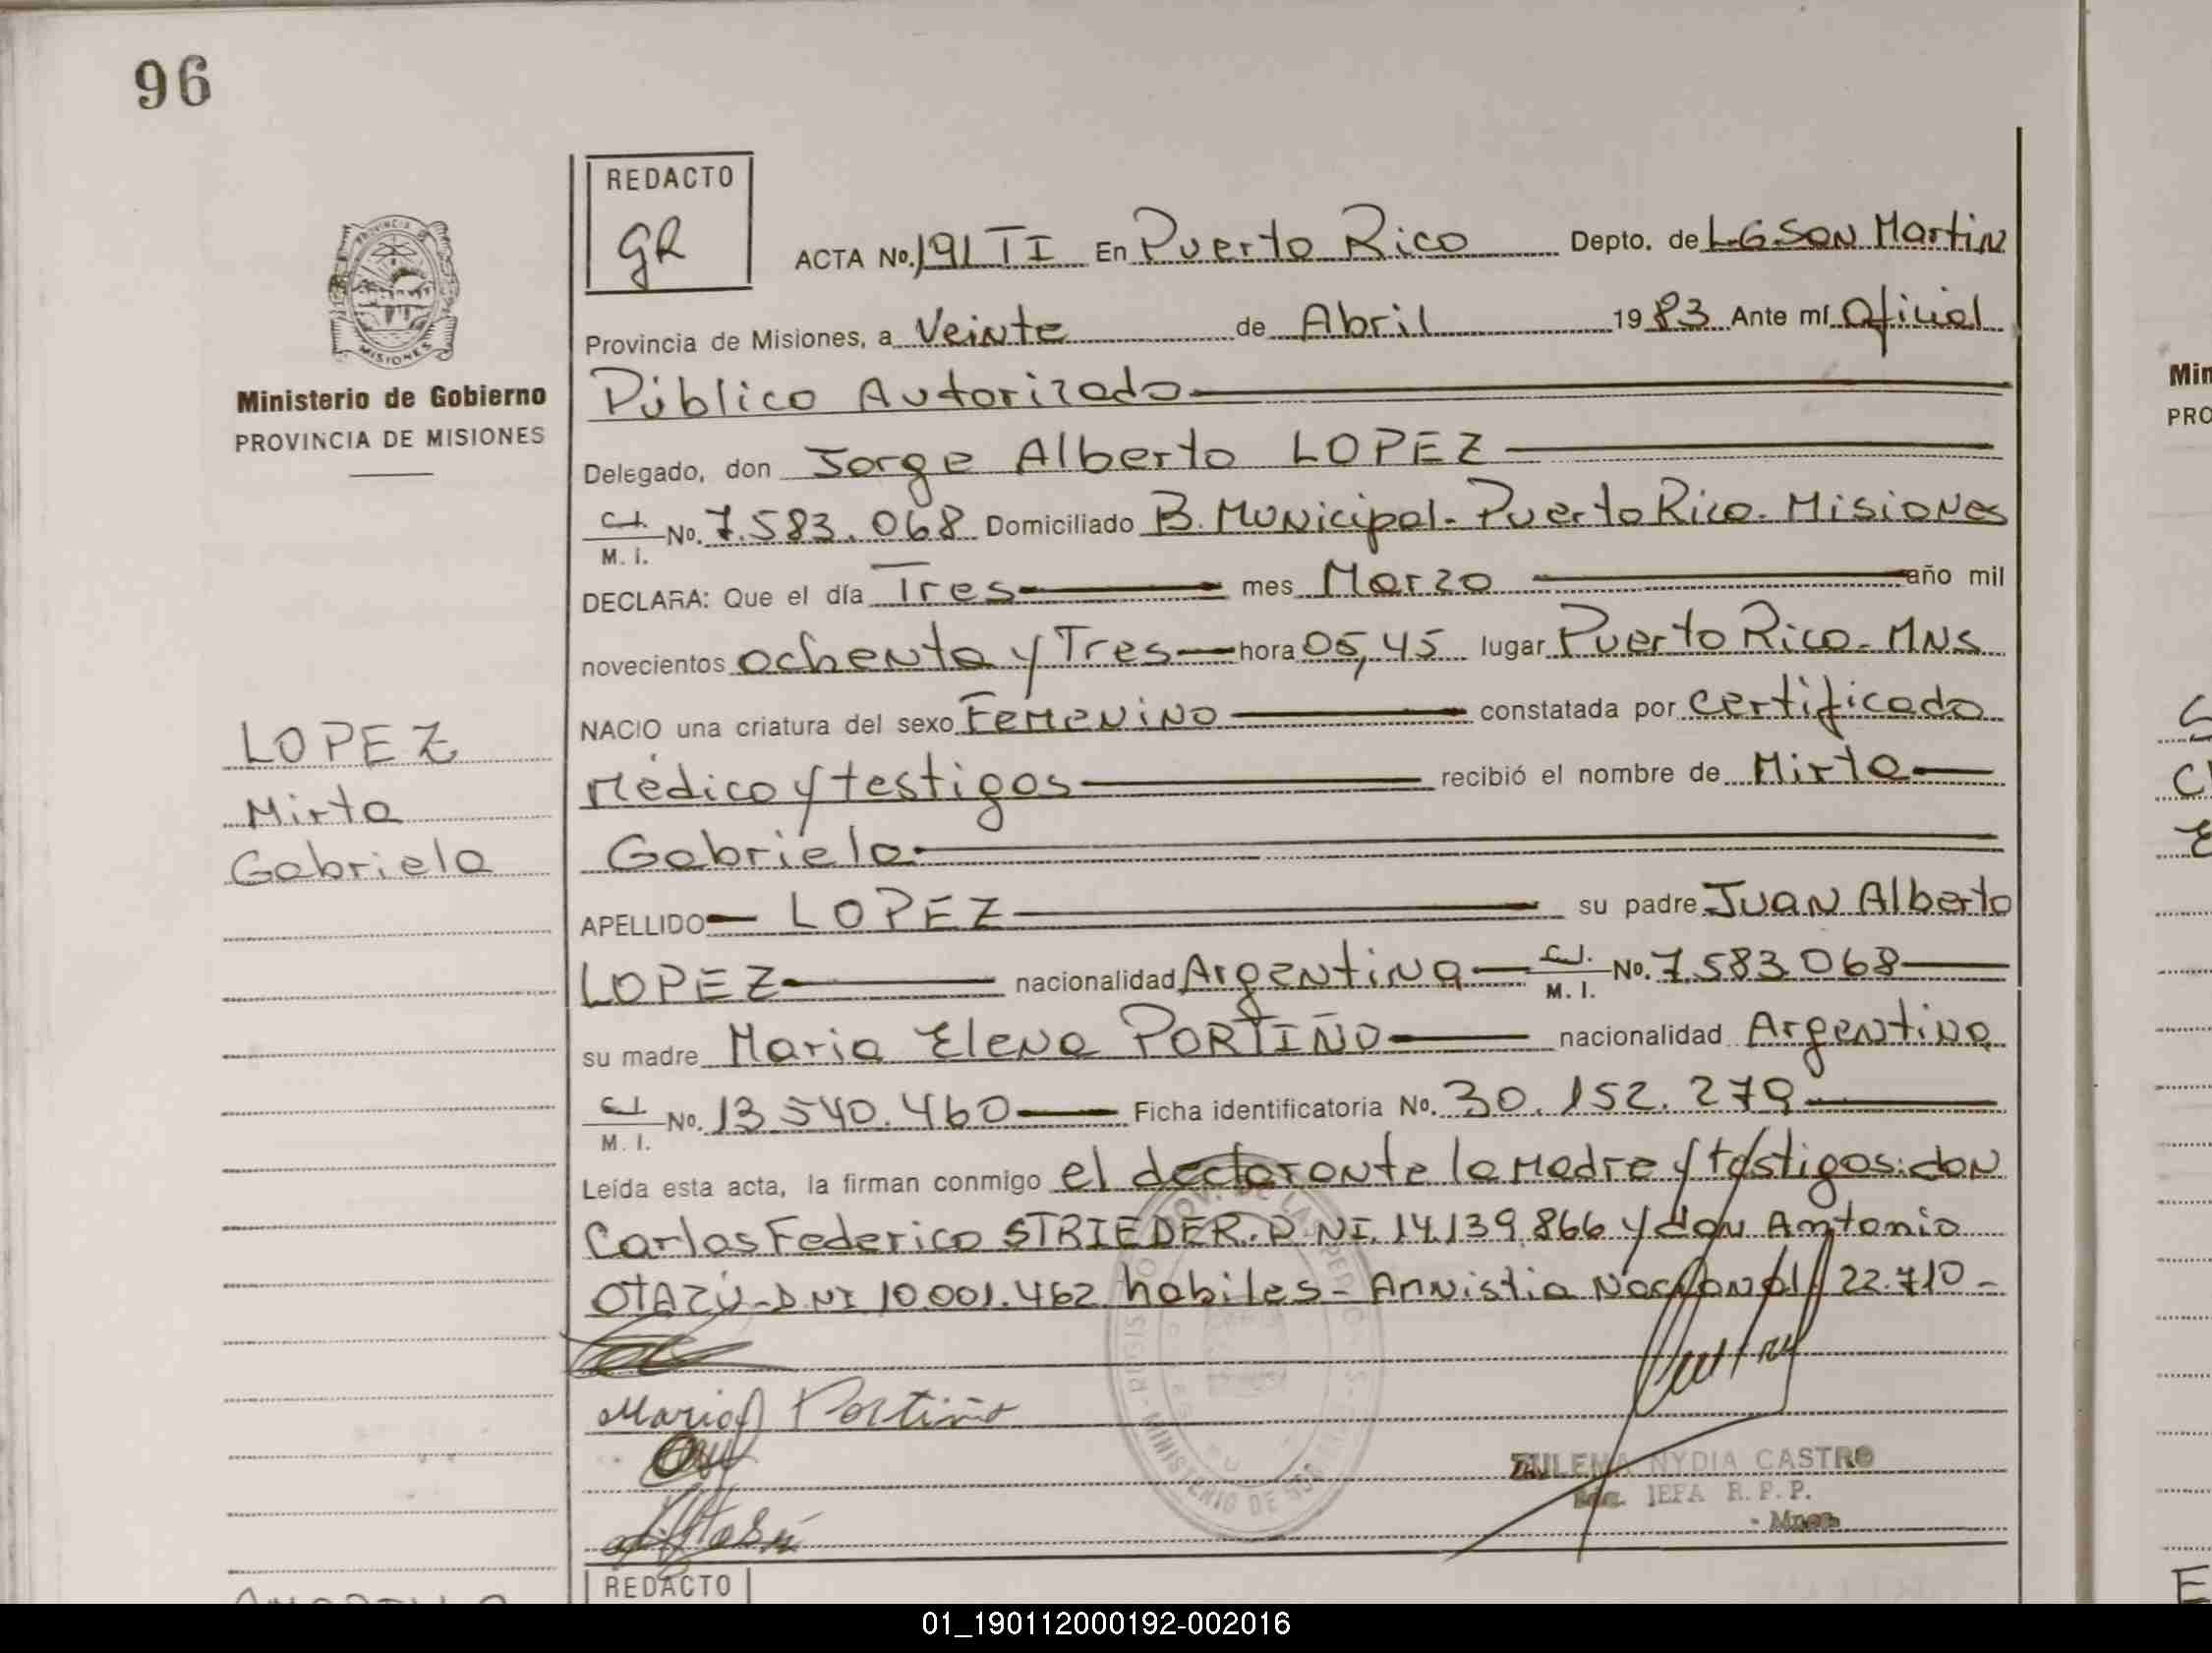 96
REDACTO
GR
ACTA No. 191 TI En Puerto Rico Depto. de L.G.San Martin
Provincia de Misiones, a Veinte de Abril 1983 Ante mí Oficial
Público Autorizado
Delegado, don Jorge Alberto LOPEZ
C.I.
M. I. No. 7.583.068 Domiciliado B. Municipal- Puerto Rico- Misiones
DECLARA: Que el día Tres mes Marzo año mil
novecientos ochenta y Tres hora 05,45 lugar Puerto Rico- MNS
NACIO una criatura del sexo Femenino constatada por certificado
Médico y testigos recibió el nombre de Mirta
Gabriela
APELLIDO LOPEZ su padre Juan Alberto
LOPEZ nacionalidad Argentina C.I. M. I. No. 7.583.068
su madre Maria Elena PORTIÑO nacionalidad Argentina
C.I. M. I. No. 13.540.460 Ficha identificatoria No. 30.152.279
Leída esta acta, la firman conmigo el declarante la Madre y testigos: don
Carlos Federico STRIEDER. D.NI. 14.139.866 y don Antonio
OTAZÚ- D.NI 10.001.462 habiles- Amnistia Nacional 22.710-
Maria Portiño
ZULEMA NYDIA CASTRO
JEFA R. P. P.
MISIONES
Ministerio de Gobierno
PROVINCIA DE MISIONES
LOPEZ
Mirta
Gabriela
REDACTO
Min
PRO
01_190112000192-002016